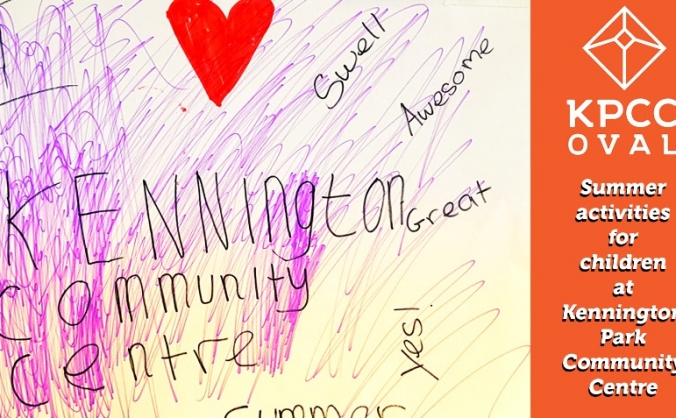 Swell
Awesome
KENNington
Great
community
centre
yes!
summer
KPCC
OVAL
Summer
activities
for
children
at
Kennington
Park
Community
Centre